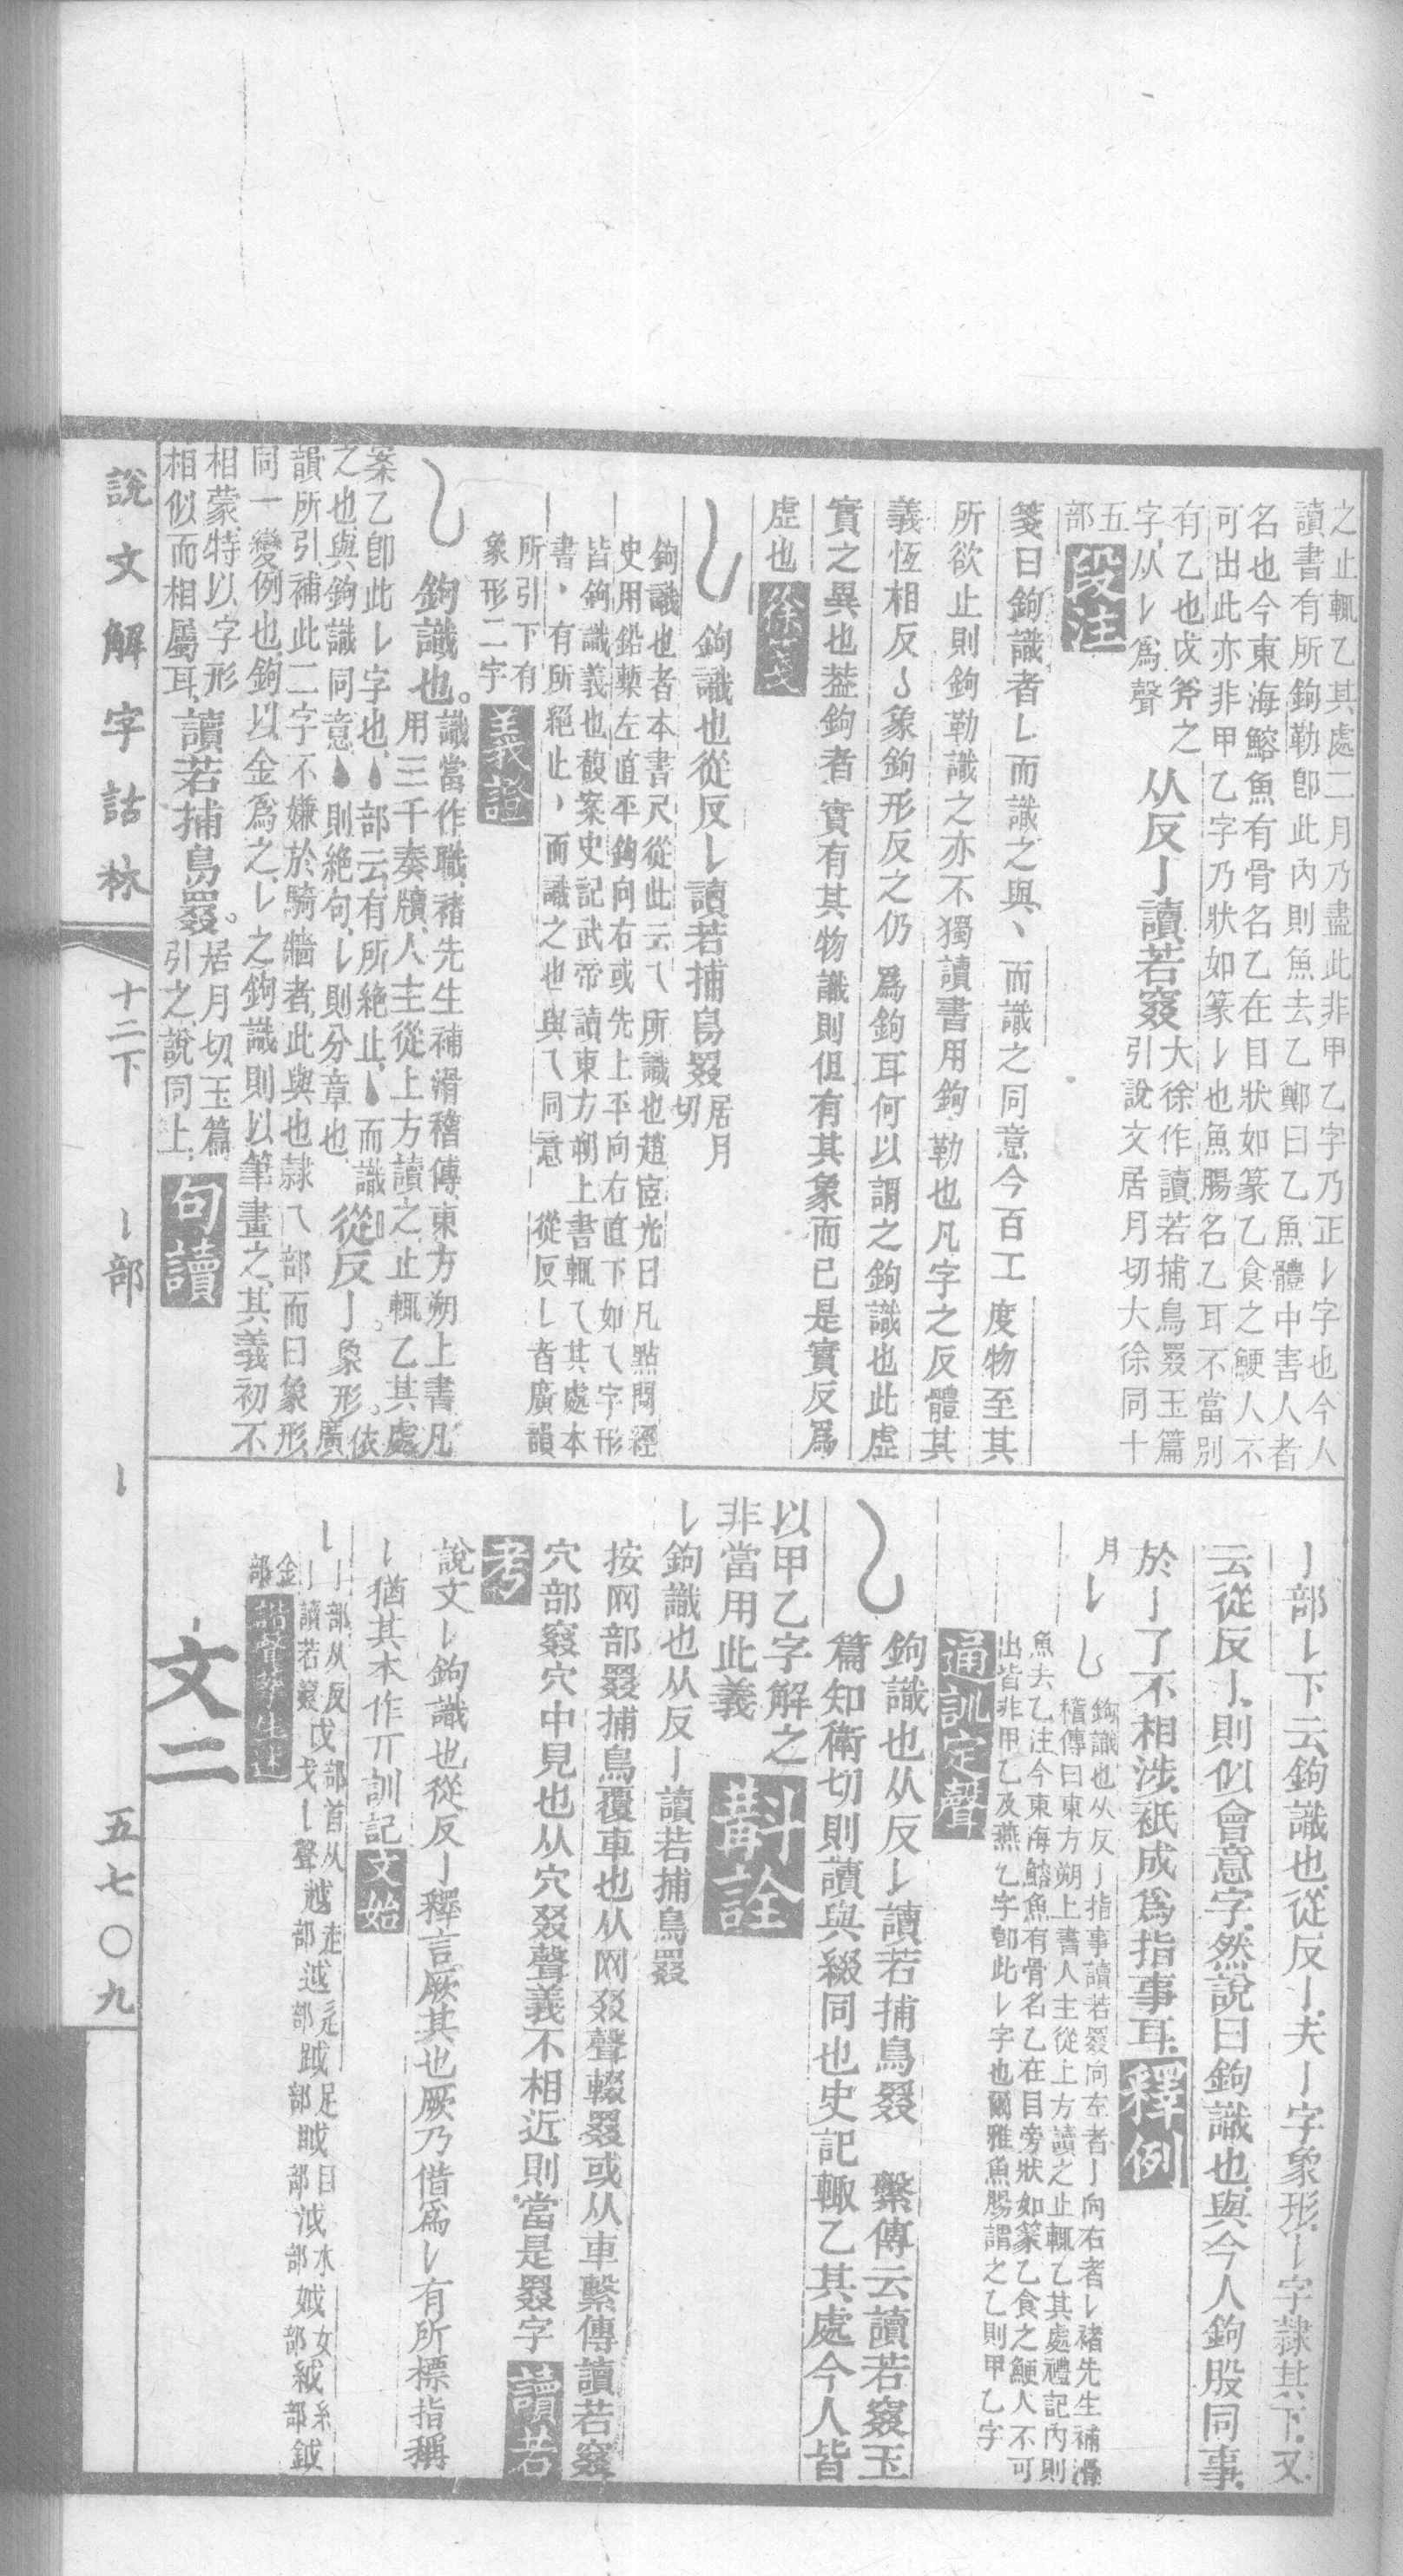 之止輒乙其處二月乃盡此非甲乙字乃正𠄌字也今人
讀書有所鉤勒卽此內則魚去乙鄭曰乙魚體中害人者
名也今東海鰫魚有骨名乙在目狀如篆乙食之鯁人不
可出此亦非甲乙字乃狀如篆𠄌也魚腸名乙耳不當別
有乙也戉斧之
字从𠄌爲聲
从反亅讀若窡
大徐作讀若捕鳥罬玉篇
引說文居月切大徐同十
五
部
段注
箋曰鉤識者𠄌而識之與丶而識之同意今百工度物至其
所欲止則鉤勒識之亦不獨讀書用鉤勒也凡字之反體其
義恆相反亅象鉤形反之仍爲鉤耳何以謂之鉤識也此虛
實之異也葢鉤者實有其物識則但有其象而已是實反爲
虛也
徐箋
𠄌
鉤識也從反亅讀若捕鳥罬
居月
切
鉤識也者本書尺從此云乀所識也趙宧光曰凡點閱經
史用鉛槧左直平鉤向右或先上平向右直下如乀字形
皆鉤識義也馥案史記武帝讀東方朔上書輒乀其處本
書丶有所絕止丶而識之也與乀同意
從反亅者廣韻
所引下有
象形二字
義證
𠄌
鉤識也。
識當作職、褚先生補滑稽傳、東方朔上書、凡
用三千奏牘、人主從上方讀之、止輒乙其處。
案乙卽此𠄌字也、丶部云、有所絕止、丶而識
之也、與鉤識同意、丶則絕句、𠄌則分章也、
從反亅。
象形。
依
廣
韻所引補、此二字不嫌於騎牆者、此與也隸乁部而曰象形、
同一變例也、鉤以金爲之、𠄌之鉤識則以筆畫之、其義初不
相蒙、特以字形
相似而相屬耳、
讀若捕鳥罬。
居月切、玉篇
引之、說同上、
句讀
亅部𠄌下云鉤識也、從反亅、夫亅字象形、𠄌字隸其下、又
云從反亅、則似會意字、然說曰鉤識也、與今人鉤股同事、
於亅了不相涉、衹成爲指事耳、
釋例
月𠄌
𠄌
鉤識也从反亅指事讀若罬向左者亅向右者𠄌褚先生補滑
稽傳曰東方朔上書人主從上方讀之止輒乙其處禮記內則
魚去乙注今東海鰫魚有骨名乙在目旁狀如篆乙食之鯁人不可
出皆非甲乙及燕乞字卽此𠄌字也爾雅魚腸謂之乙則甲乙字
通訓定聲
𠄌
鉤識也从反亅讀若捕鳥罬
繫傳云讀若窡玉
篇知衛切則讀與綴同也史記輒乙其處今人皆
以甲乙字解之
非當用此義
斠詮
𠄌鉤識也从反亅讀若捕鳥罬
按网部罬捕鳥覆車也从网叕聲輟罬或从車繫傳讀若窡
穴部窡穴中見也从穴叕聲義不相近則當是罬字
讀若
考
說文𠄌鉤識也從反亅釋言厥其也厥乃借爲𠄌有所標指稱
𠄌猶其本作丌訓記
文始
𠄌
亅部从反
亅讀若窡
戉
戉部首从
戈𠄌聲
越
走
部
𨒋
辵
部
跀
足
部
眓
目
部
泧
水
部
娍
女
部
絨
糸
部
鉞
金
部
諧聲孳生述
文二
說文解字詁林
十二下
𠄌部
𠄌
五七〇九